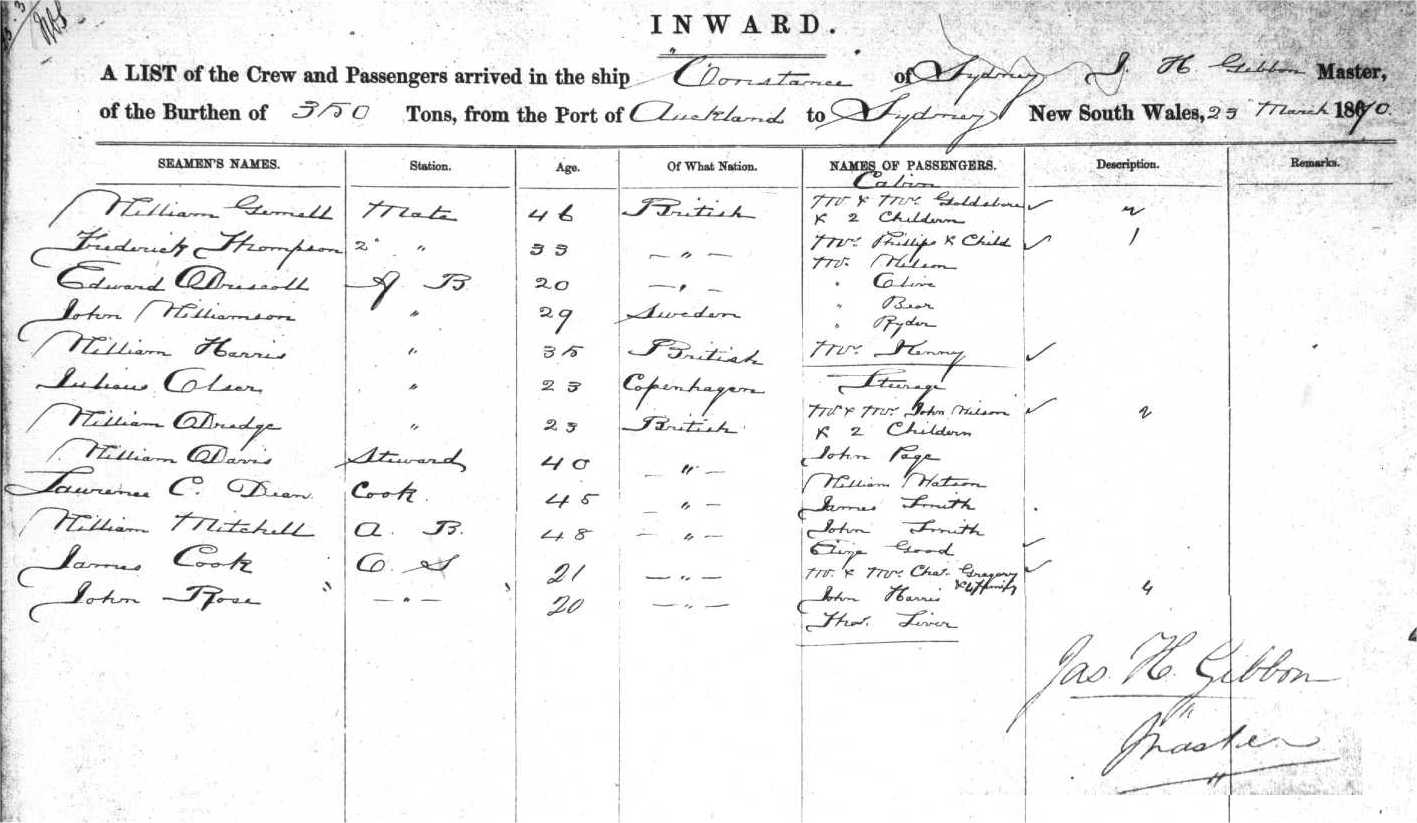 INWARD.
A LIST of the Crew and Passengers arrived in the ship Constance of Sydney J. H Gibbon Master,
of the Burthen of 350 Tons, from the Port of Auckland to Sydney New South Wales, 23 March 1870.
SEAMEN'S NAMES. Station. Age. Of What Nation. NAMES OF PASSENGERS. Description. Remarks.
Cabin
William Gemell Mate 46 British Mr & Mrs Goldsbore ✓ 2
& 2 Childern
Frederick Thompson 2 " 33 — " — Mrs Phillips & Child ✓ 1
Mr. Wilson
Edward ODriscoll A B 20 — " — " Clive
John Williamson " 29 Sweden " Bear
" Ryder
William Harris " 35 British Mrs Kenny ✓
Julious Olsen " 23 Copenhagen Sturage
William Dredge " 23 British Mr & Mrs John Wilson ✓ 2
& 2 Childern
William Davis Steward 40 — " — John Page
Lawrence C. Dean Cook. 45 — " — William Watson
James Smith
William Mitchell A. B. 48 — " — John Smith
Eliza Good ✓
James Cook O S 21 — " — Mr. & Mrs Chas. Gregory ✓
John Rose " — " — 20 — " — John Harris & 4 Family 4
Thos. Liver
Jas. H. Gibbon
Master